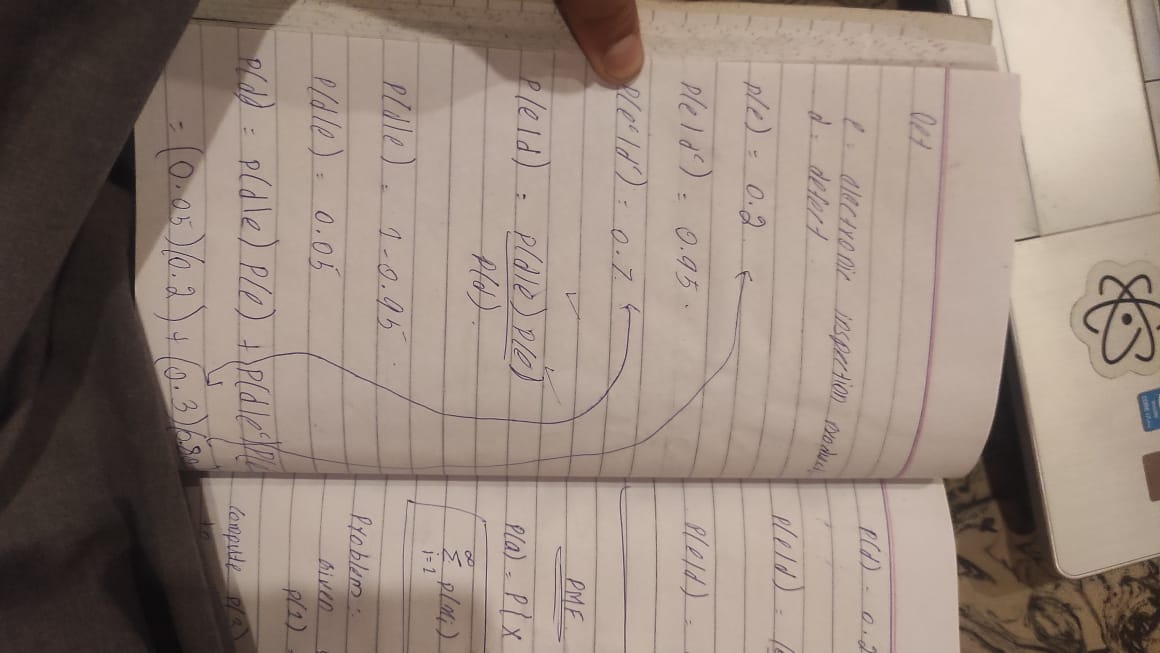 e = electronic inspection
d = defect.
p(e) = 0.2
p(e|dᶜ) = 0.95.
p(eᶜ|dᶜ) = 0.7
p(e|d) = p(d|e) p(e)
p(d).
p(d|e) = 1-0.95.
p(d|e) = 0.05
p(d) = p(d|e) p(e) + p(d|eᶜ)
= (0.05)(0.2) + (0.3)
p(d) = 0.2
p(e|d) =
p(e|d) =
PMF
p(a) = P{X
∞
Σ
i=1
Problem:
Given
p(1) =
Compute p(2)